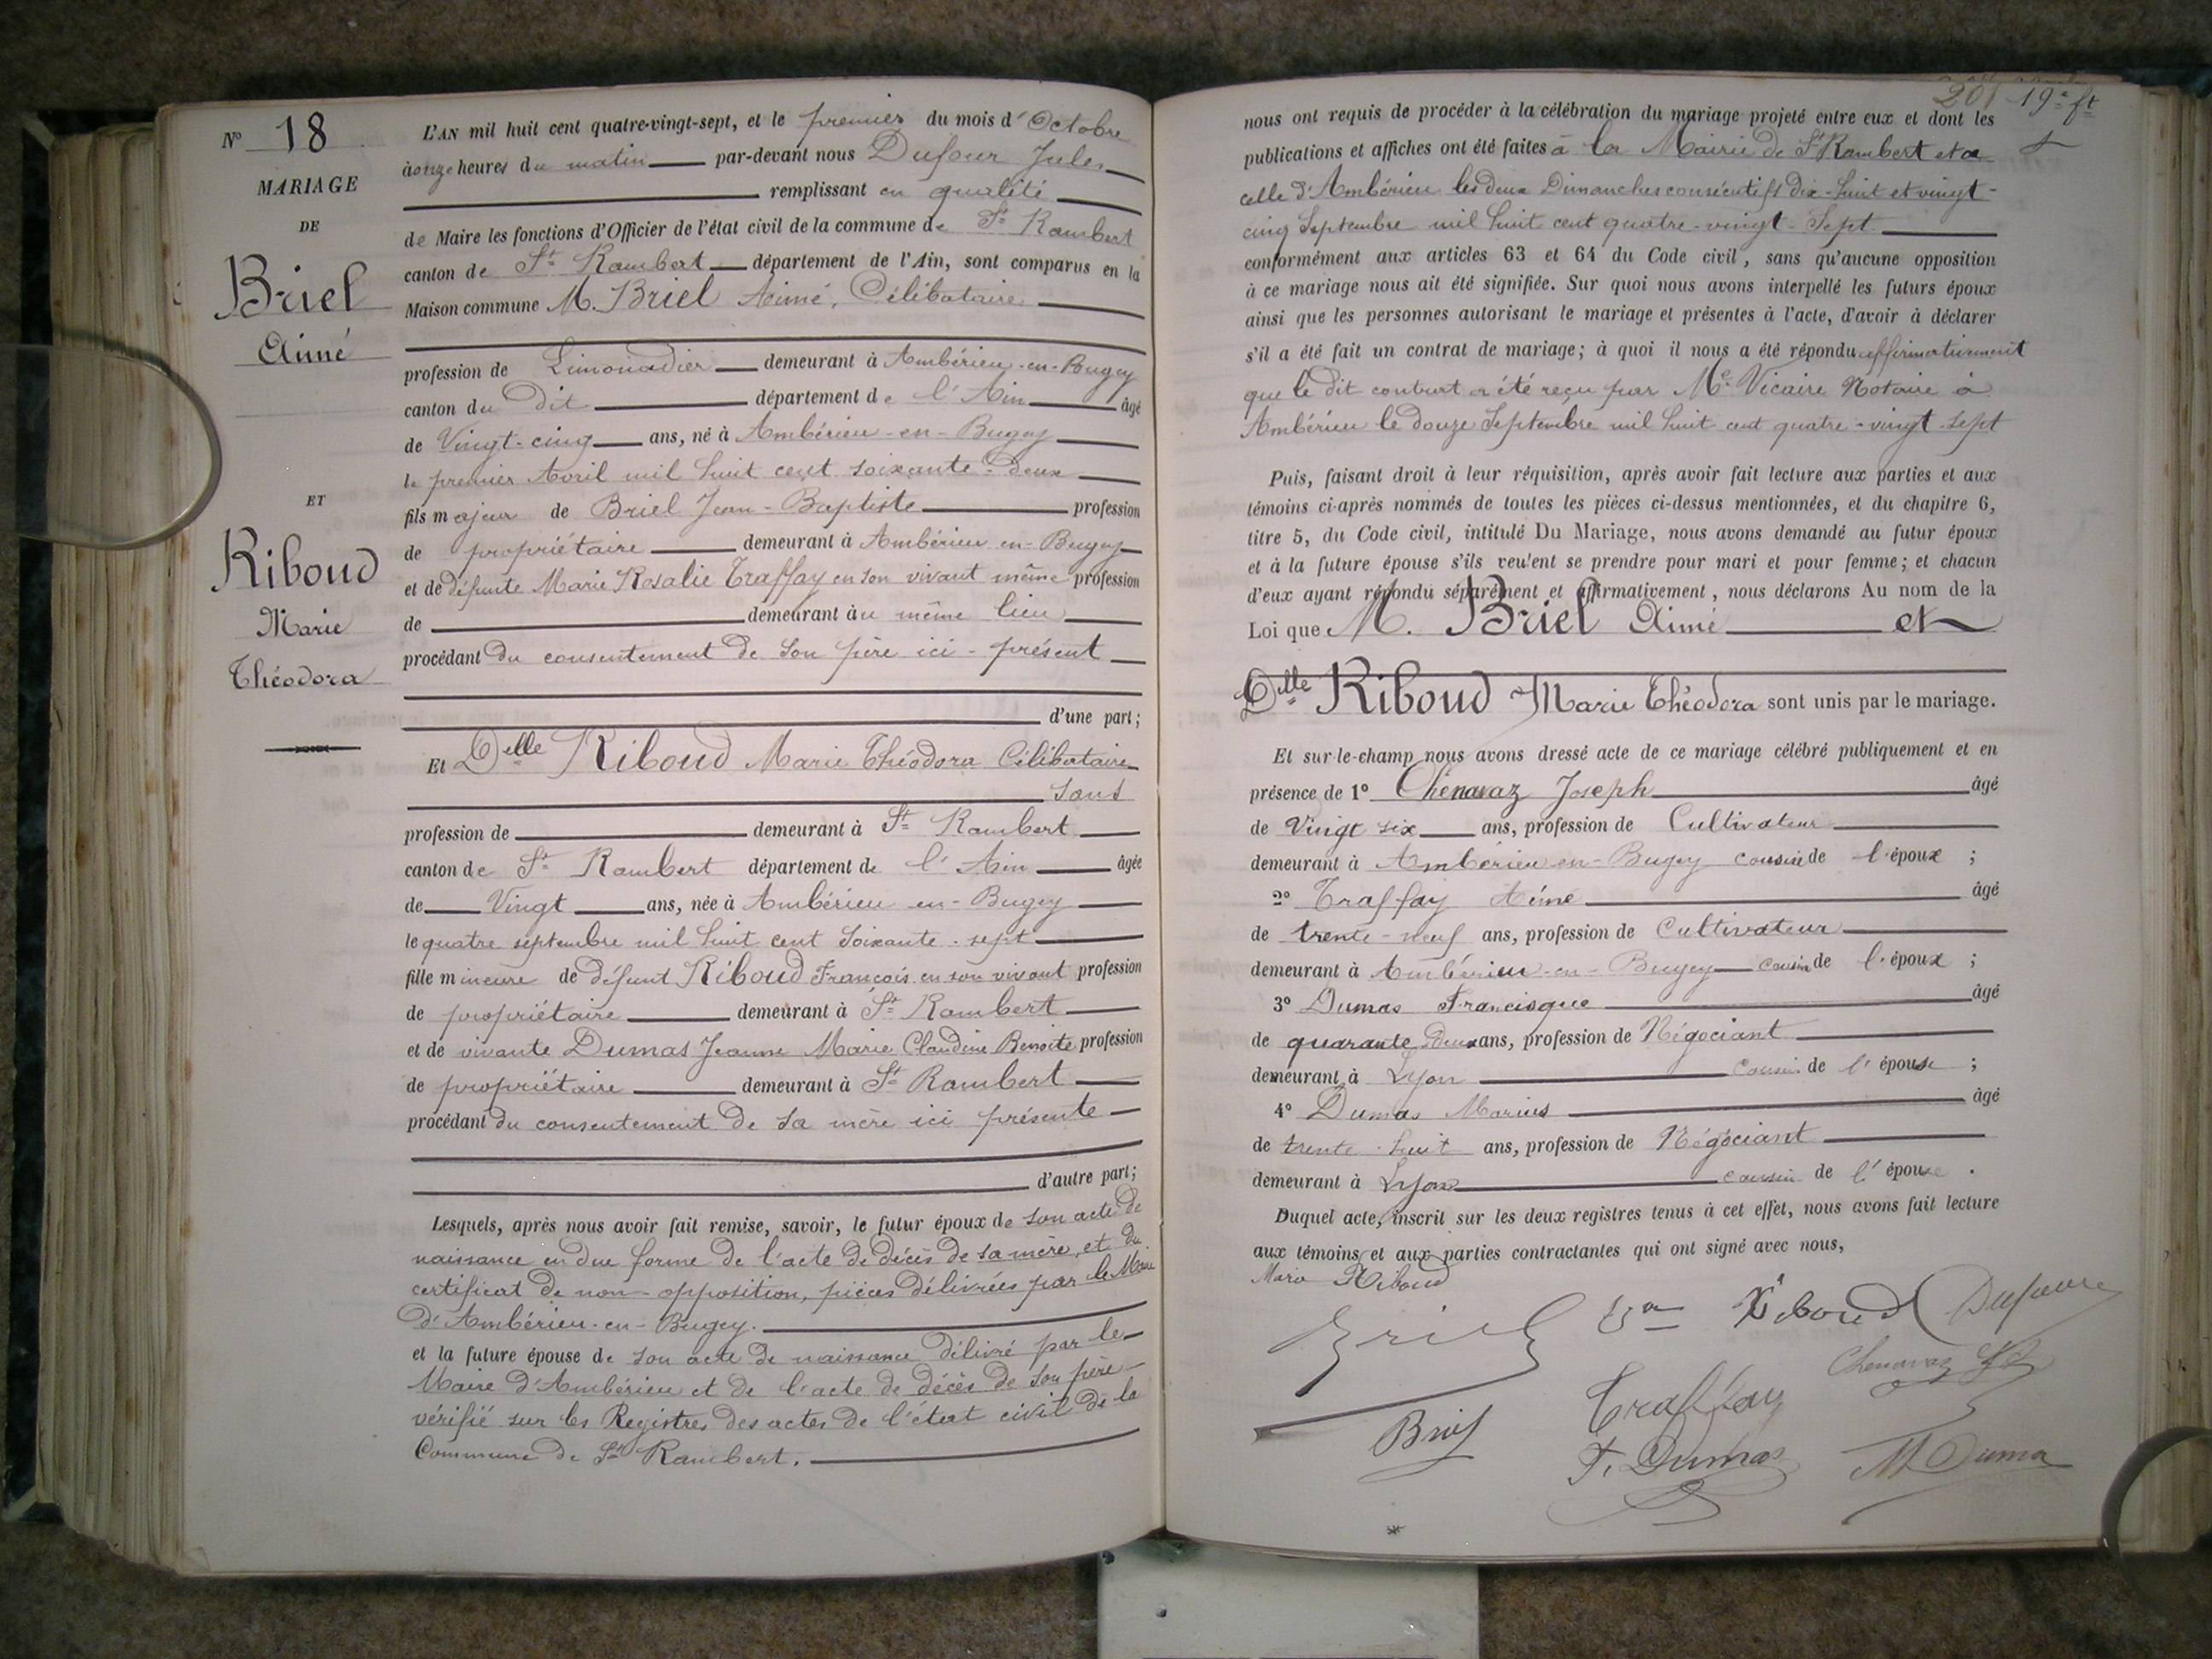 N° 18
MARIAGE
DE
Briel
Aimé
ET
Riboud
Marie
Théodora
L'AN mil huit cent quatre-vingt-sept, et le premier du mois d'Octobre
à onze heures du matin par-devant nous Dufour Jules
remplissant en qualité
de Maire les fonctions d'Officier de l'état civil de la commune de St Rambert
canton de St Rambert département de l'Ain, sont comparus en la
Maison commune M. Briel Aimé, Célibataire
profession de Limonadier demeurant à Ambérieu-en-Bugey
canton du dit département de l'Ain âgé
de Vingt-cinq ans, né à Ambérieu-en-Bugey
le premier Avril mil huit cent soixante-deux
fils majeur de Briel Jean-Baptiste profession
de propriétaire demeurant à Ambérieu-en-Bugey
et de défunte Marie Rosalie Traffay en son vivant même profession
de demeurant au même lieu
procédant du consentement de son père ici-présent
d'une part;
Et Delle Riboud Marie Théodora Célibataire
sans
profession de demeurant à St Rambert
canton de St Rambert département de l'Ain âgée
de Vingt ans, née à Ambérieu-en-Bugey
le quatre septembre mil huit cent soixante-sept
fille mineure de défunt Riboud François en son vivant profession
de propriétaire demeurant à St Rambert
et de vivante Dumas Jeanne Marie Claudine Benoite profession
de propriétaire demeurant à St Rambert
procédant du consentement de sa mère ici présente
d'autre part;
Lesquels, après nous avoir fait remise, savoir, le futur époux de son acte de
naissance en due forme de l'acte de décès de sa mère, et du
certificat de non-opposition, pièces délivrées par le Maire
d'Ambérieu-en-Bugey.
et la future épouse de son acte de naissance délivré par le
Maire d'Ambérieu et de l'acte de décès de son père
vérifié sur les Registres des actes de l'état civil de la
Commune de St Rambert.
201 19e ft
nous ont requis de procéder à la célébration du mariage projeté entre eux et dont les
publications et affiches ont été faites à la Mairie de St Rambert et a
celle d'Ambérieu les deux Dimanches consécutifs dix-huit et vingt-
cinq Septembre mil huit cent quatre-vingt-Sept
conformément aux articles 63 et 64 du Code civil, sans qu'aucune opposition
à ce mariage nous ait été signifiée. Sur quoi nous avons interpellé les futurs époux
ainsi que les personnes autorisant le mariage et présentes à l'acte, d'avoir à déclarer
s'il a été fait un contrat de mariage; à quoi il nous a été répondu affirmativement
que le dit contrat a été reçu par Me Vicaire Notaire à
Ambérieu le douze Septembre mil huit cent quatre-vingt-sept
Puis, faisant droit à leur réquisition, après avoir fait lecture aux parties et aux
témoins ci-après nommés de toutes les pièces ci-dessus mentionnées, et du chapitre 6,
titre 5, du Code civil, intitulé Du Mariage, nous avons demandé au futur époux
et à la future épouse s'ils veulent se prendre pour mari et pour femme; et chacun
d'eux ayant répondu séparément et affirmativement, nous déclarons Au nom de la
Loi que M. Briel Aimé et
Delle Riboud Marie Théodora sont unis par le mariage.
Et sur-le-champ nous avons dressé acte de ce mariage célébré publiquement et en
présence de 1° Chenavaz Joseph âgé
de Vingt six ans, profession de Cultivateur
demeurant à Ambérieu-en-Bugey cousin de l'époux ;
2° Traffay Aimé âgé
de trente-neuf ans, profession de Cultivateur
demeurant à Ambérieu-en-Bugey cousin de l'époux ;
3° Dumas Francisque âgé
de quarante deux ans, profession de Négociant
demeurant à Lyon cousin de l'épouse ;
4° Dumas Marius âgé
de trente-huit ans, profession de Négociant
demeurant à Lyon cousin de l'épouse .
Duquel acte, inscrit sur les deux registres tenus à cet effet, nous avons fait lecture
aux témoins et aux parties contractantes qui ont signé avec nous,
Marie Riboud
Briel Vve Riboud Dufour
Chenavaz
Briel Traffay
F. Dumas M Dumas